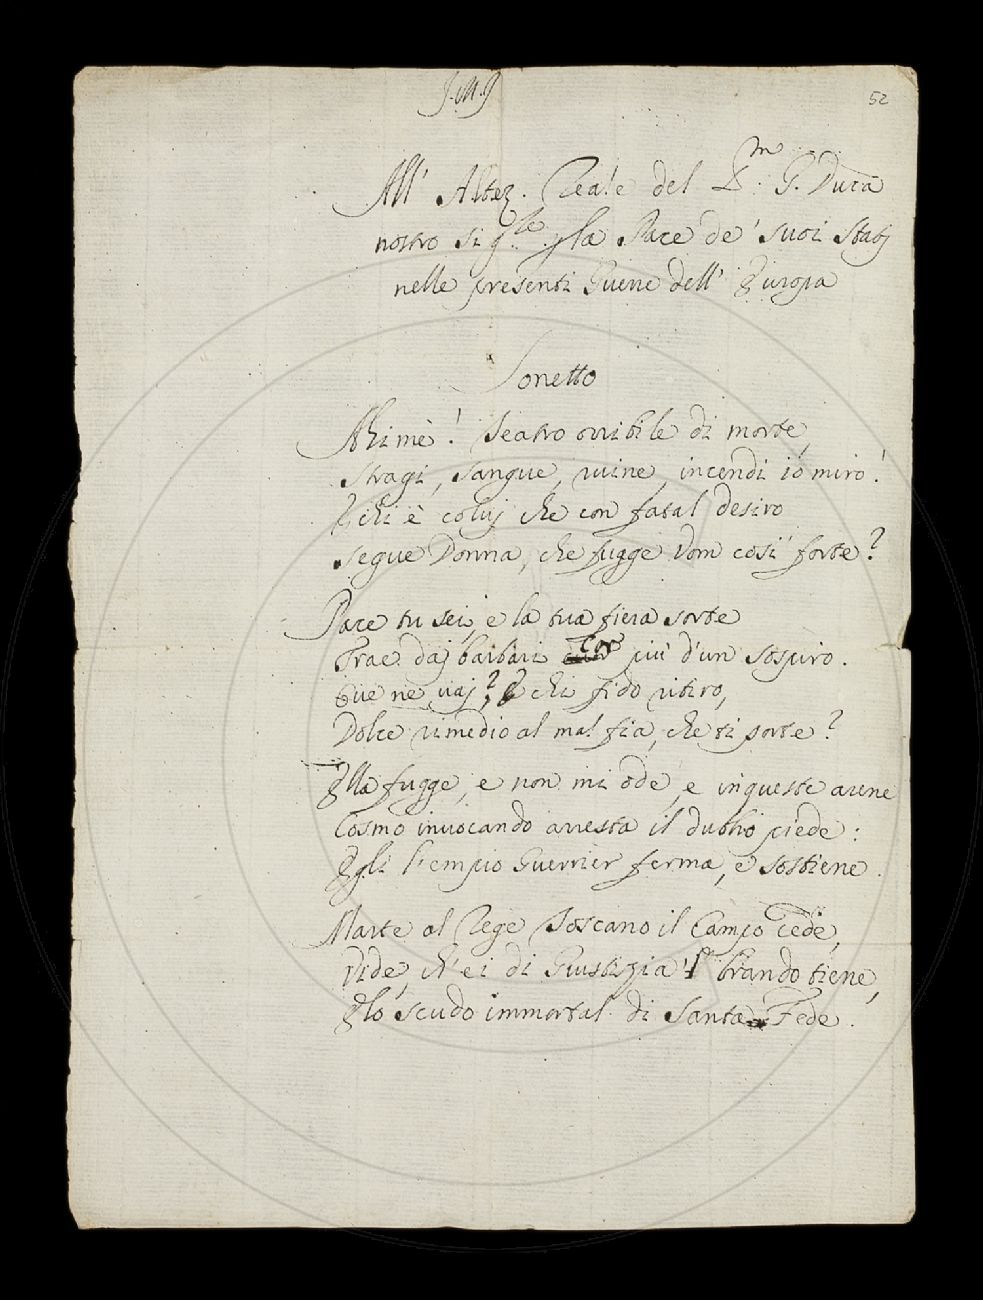 J.M.J
52
All' Altez. Reale del S.m G. Duca
nostro sig.le p la Pace de' suoi Statj
nelle presenti Guerre dell' Europa
Sonetto
Ahimè! Teatro orribile di morte,
Stragi, sangue, ruine, incendi io miro!
E chi è coluj che con fatal desiro
segue Donna, che fugge Dom così forte?
Pace tu sei, e la tua fiera sorte
Trae daj barbari cor più d'un sospiro.
Ove ne vaj? E chi fido ritiro,
Dolce rimedio al mal fia, che ti porte?
Ella fugge, e non mi ode, e in queste arene
Cosmo invocando arresta il dubbio piede:
Egli l'empio Guerrier ferma, e sostiene.
Marte al Rege Toscano il Campo cede,
Vide, ch'ei di Giustizia 'l brando tiene,
E lo scudo immortal di Santa Fede.